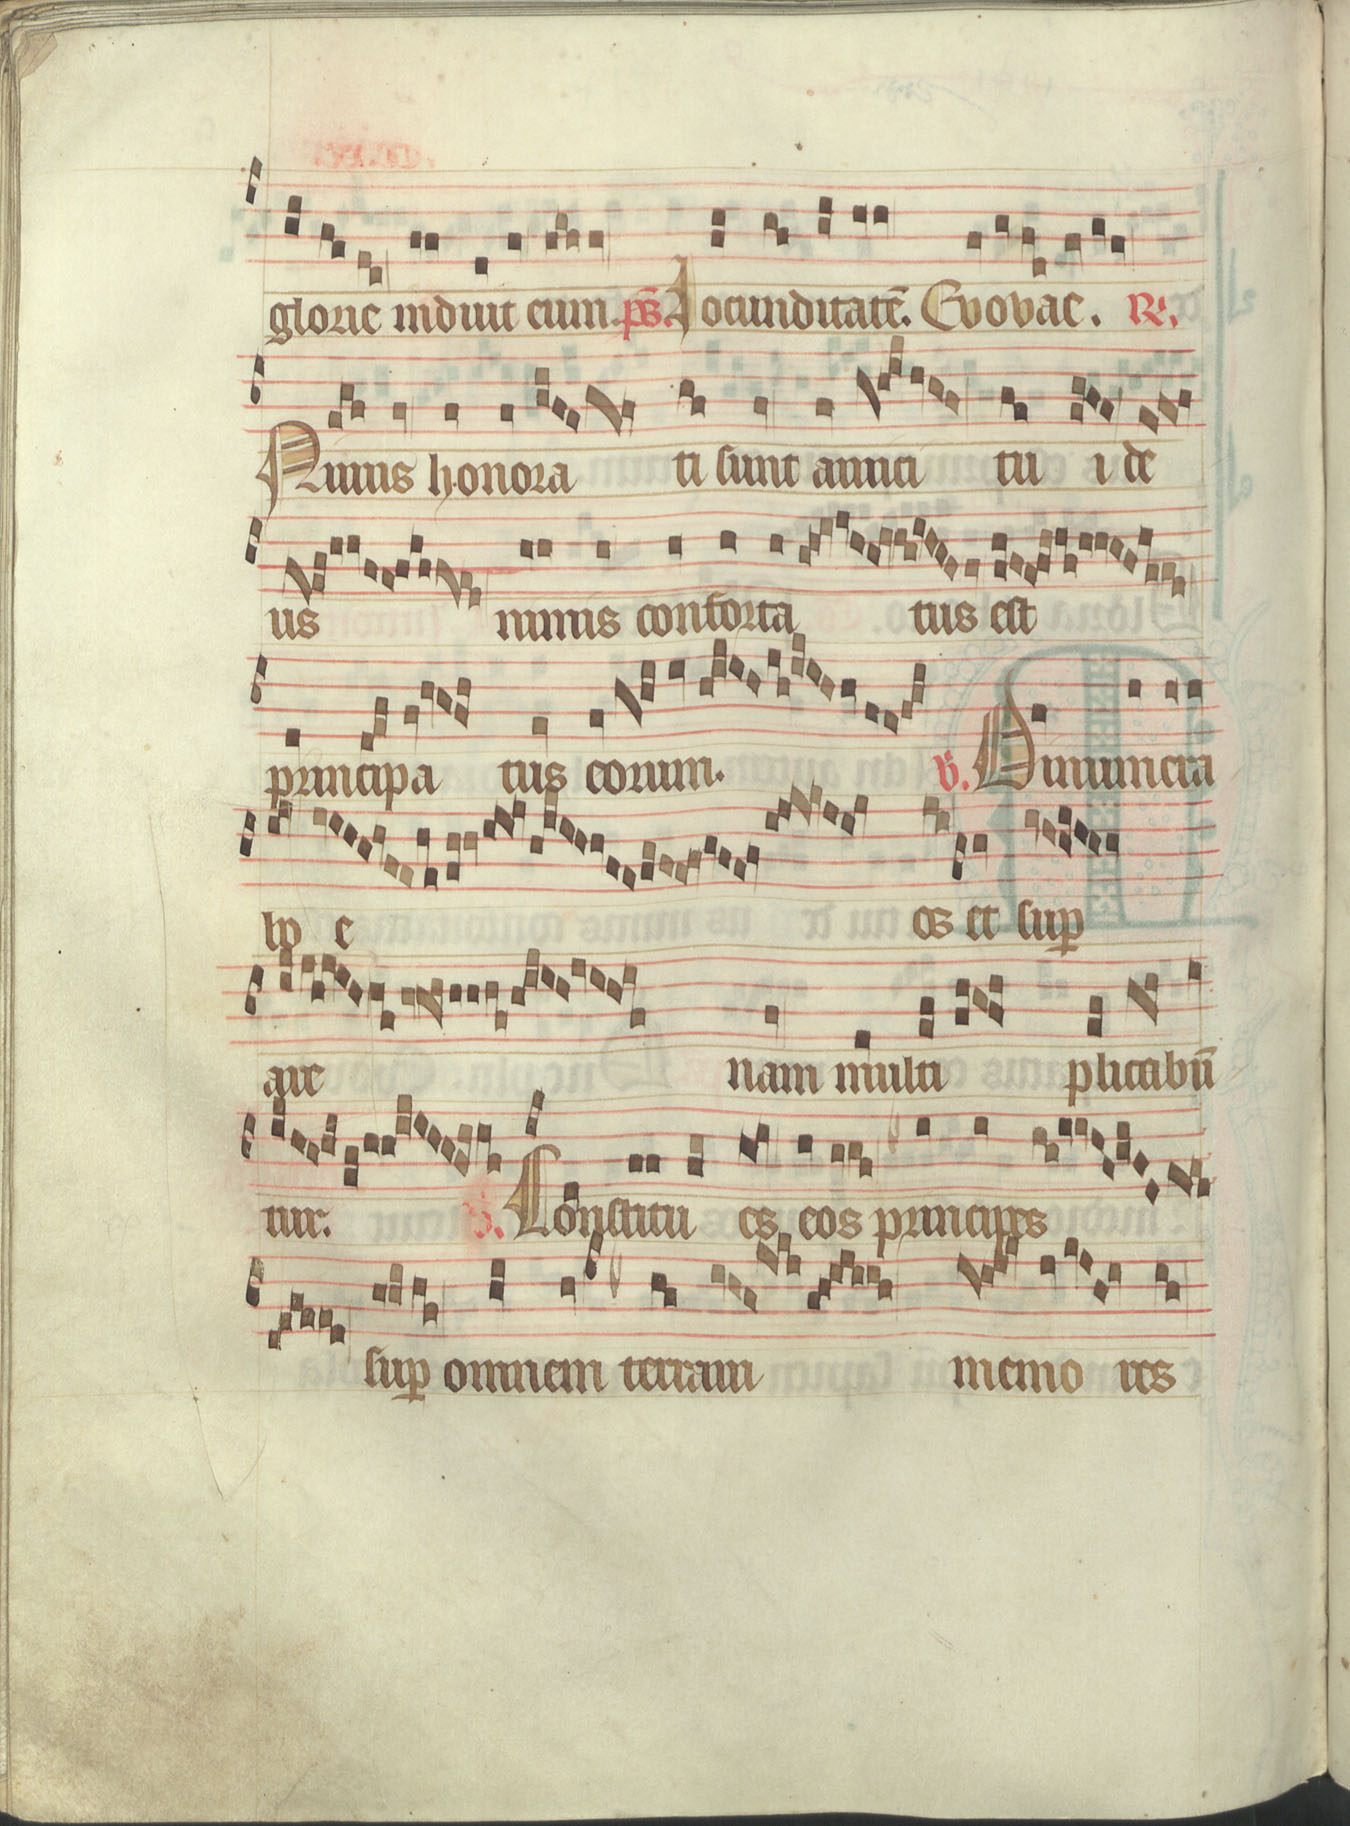 glorie induit eum. ps. Iocunditatē. Evovae. R.
Nimis honora ti sunt amici tu i de
us nimis conforta tus est
principa tus eorum. v. Dinumera
bo e os et sup
are nam multi plicabū
tur. v. Constitu es eos principes
sup omnem terram memo res